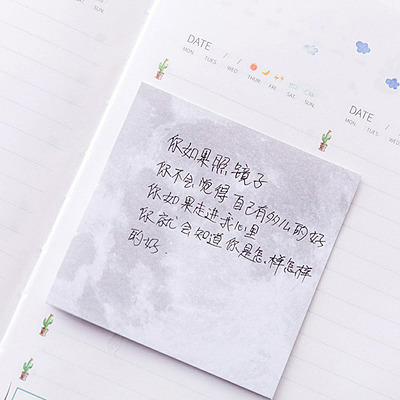 DATE / /
MON. TUES. WED. THUR. FRI. SAT. SUN.
DATE / /
MON. TUES. WED.
你如果照镜子
你不会觉得自己有多么的好
你如果走进我心里
你就会知道你是怎样怎样
的好.